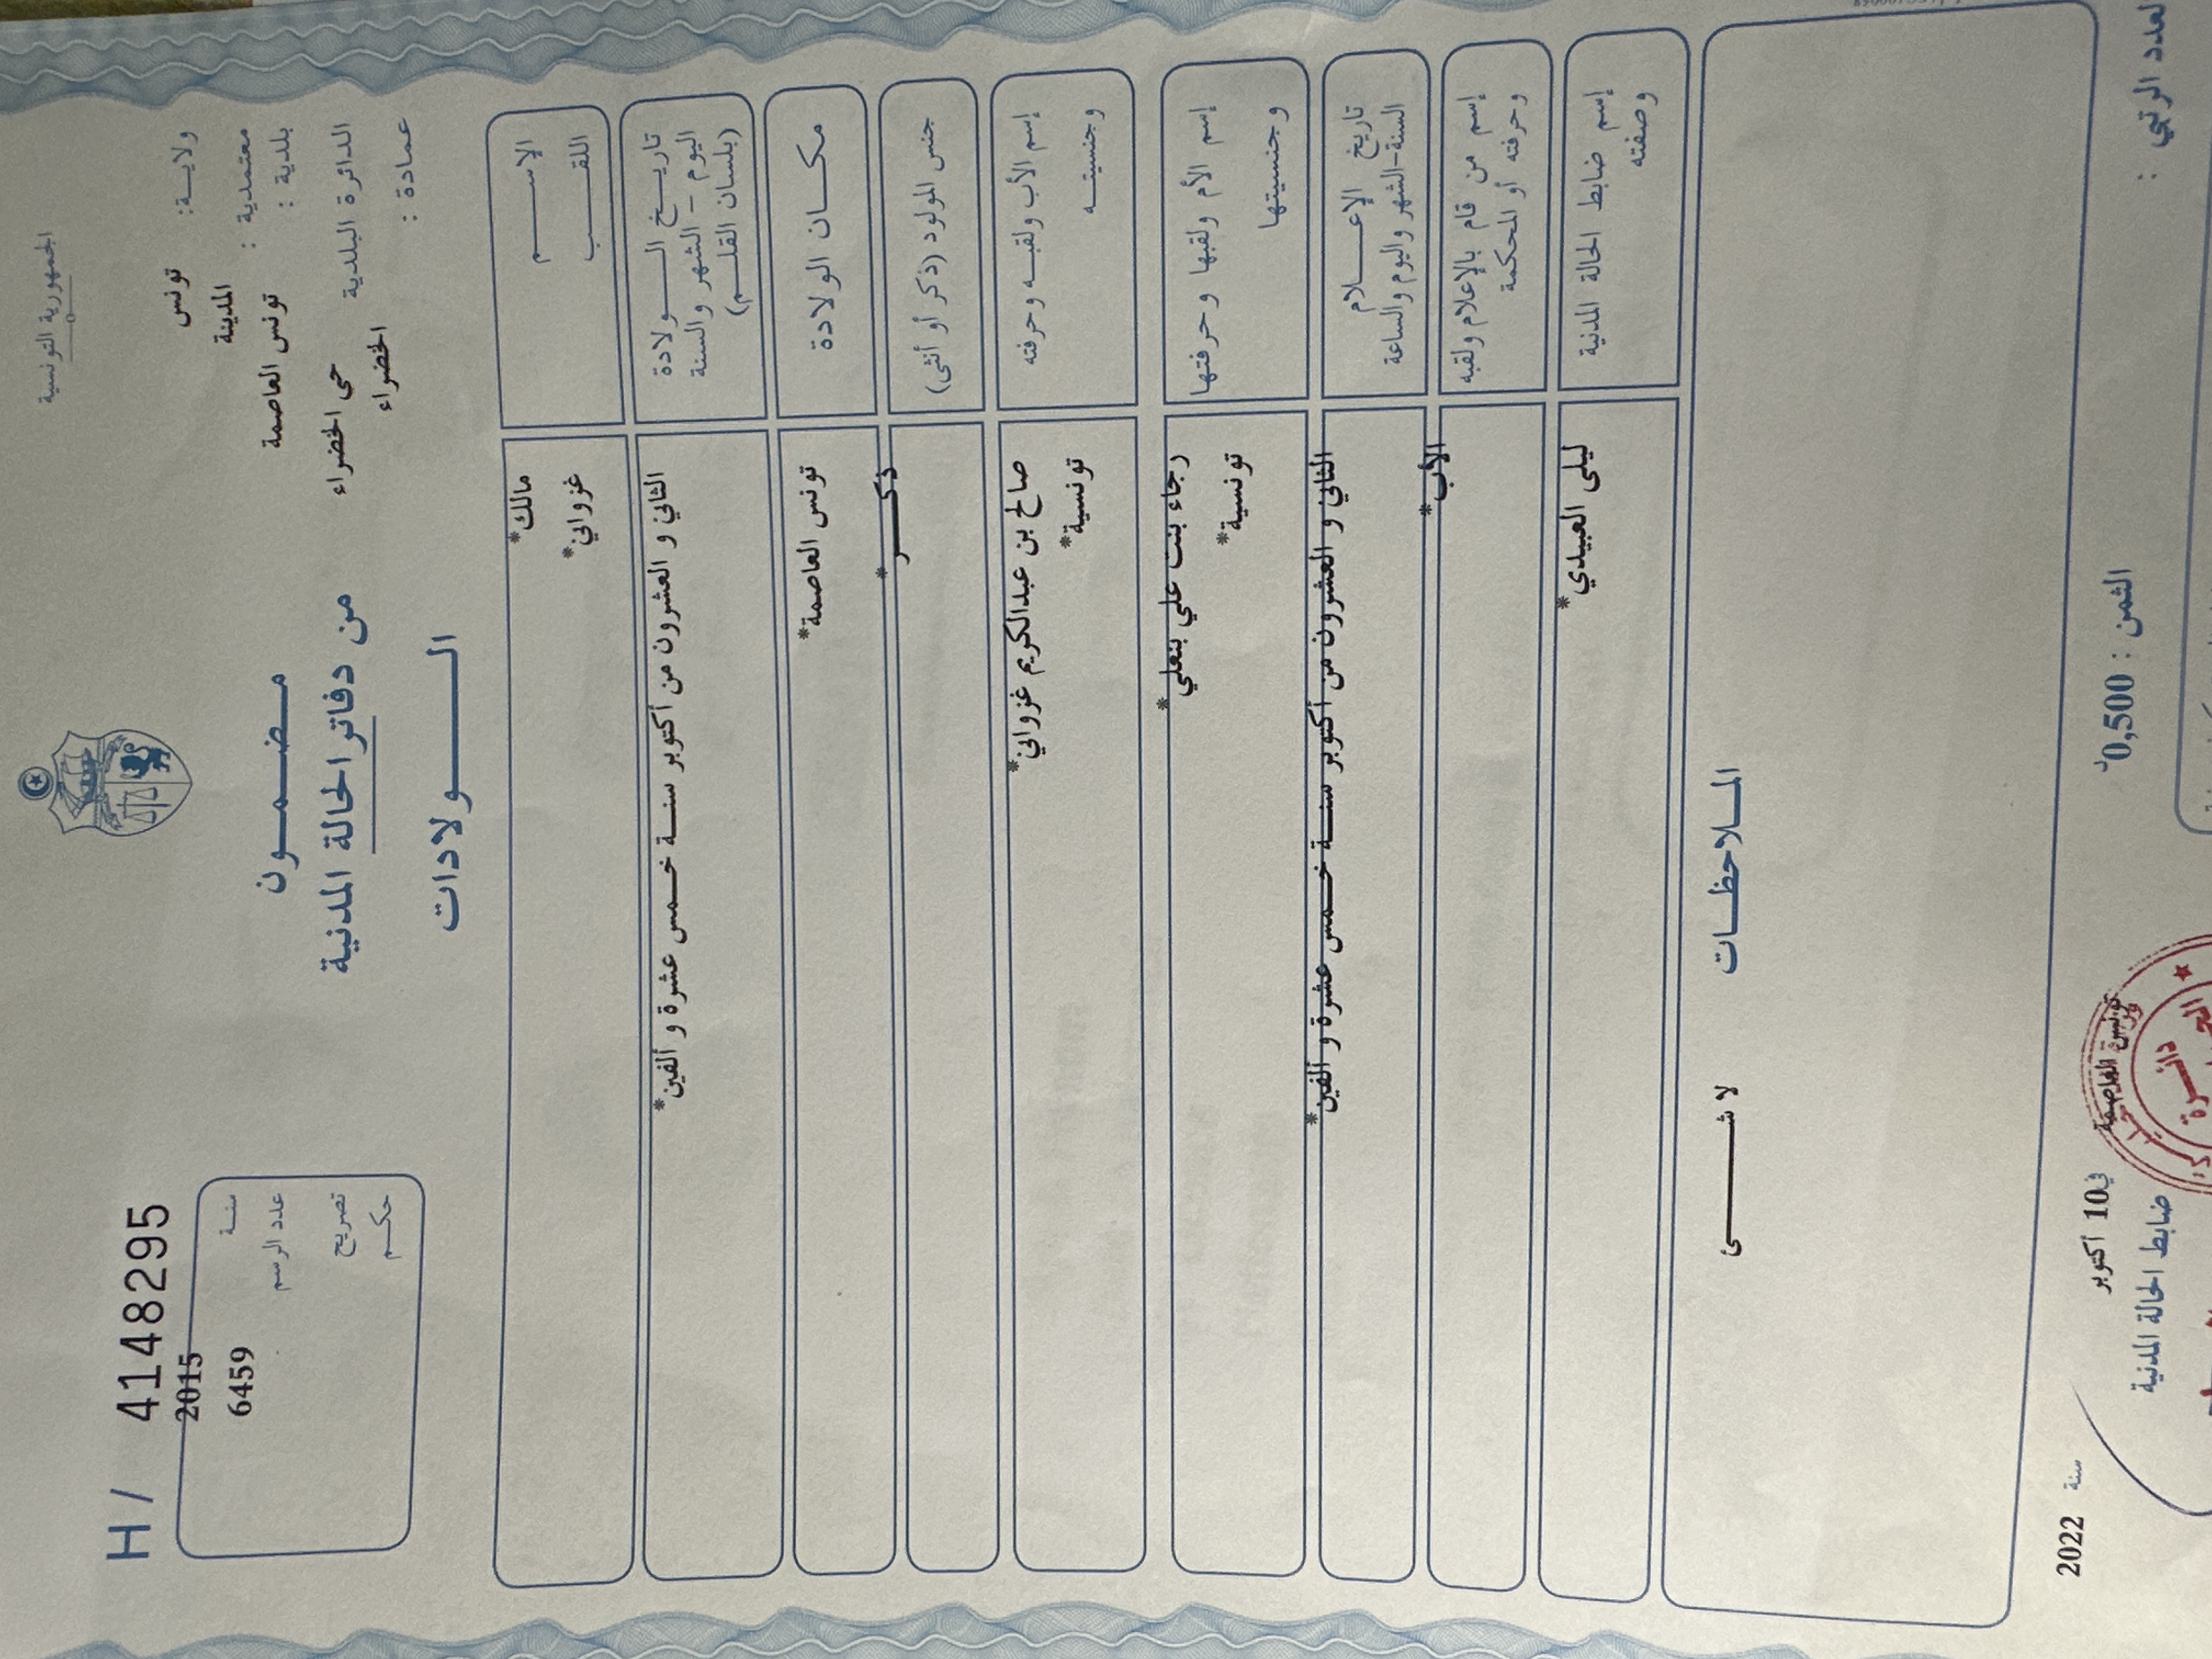 الجمهورية التونسية
H / 4148295
ولاية: تونس
معتمدية : المدينة
بلدية : تونس العاصمة
الدائرة البلدية حي الخضراء
عمادة : الخضراء
مضمون
من دفاتر الحالة المدنية
الولادات
2015
سنة
6459
عدد الرسم
تصريح
حكم
الإسم مالك*
اللقب غزواني*
تاريخ الولادة
اليوم - الشهر والسنة
(بلسان القلم)
الثاني و العشرون من أكتوبر سنة خمس عشرة و ألفين*
مكان الولادة تونس العاصمة*
جنس المولود (ذكر أو أنثى) ذكر*
إسم الأب ولقبه وحرفته صالح بن عبدالكريم غزواني*
وجنسيته تونسية*
إسم الأم ولقبها وحرفتها رجاء بنت علي بنعلي*
وجنسيتها تونسية*
تاريخ الإعلام
السنة-الشهر واليوم والساعة
الثاني و العشرون من أكتوبر سنة خمس عشرة و ألفين*
إسم من قام بالإعلام ولقبه
وحرفته أو المحكمة
الأب*
إسم ضابط الحالة المدنية
وصفته
ليلى العبيدي*
الملاحظات
لا شئ
تونس العاصمة في 10 أكتوبر سنة 2022
ضابط الحالة المدنية
الثمن : 0,500د
العدد الرتبي :
دائرة